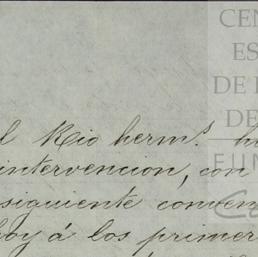 CEN
ES
DE
DE
FUN
l Rio herm.s h
intervencion, con
siguiente conven
hoy á los primer